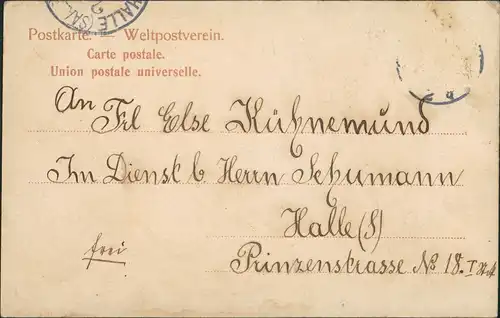 HALLE (SAA
2
Postkarte. — Weltpostverein.
Carte postale.
Union postale universelle.
An
Frl Else Kühnemund
Im Dienst b Herrn Schumann
Halle (S)
frei
Prinzenstrasse No 18. I